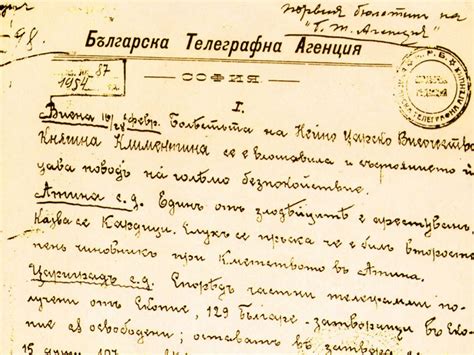 първия бюлетин на
"Б. Т. Агенция"
98.
Българска Телеграфна Агенция
87
1954
СОФИЯ
I.
Виена 16/28 февр. Болѣстьта на Нейно Царско Височество
Княгиня Клементина се е влошавила и състоянието ѝ
дава поводъ на голѣмо безпокойствие.
Атина с. д. Единъ отъ злодѣйцитѣ е арестуванъ.
Казва се Кардици. Слухъ се пръска че е билъ второсте
пенъ чиновникъ при Кметството въ Атина.
Цариградъ с. д. Споредъ частни телеграмми по-
лучени отъ Скопие, 129 Българе - затворници въ Ско
пие са освободени; оставатъ въ затвора
15 души